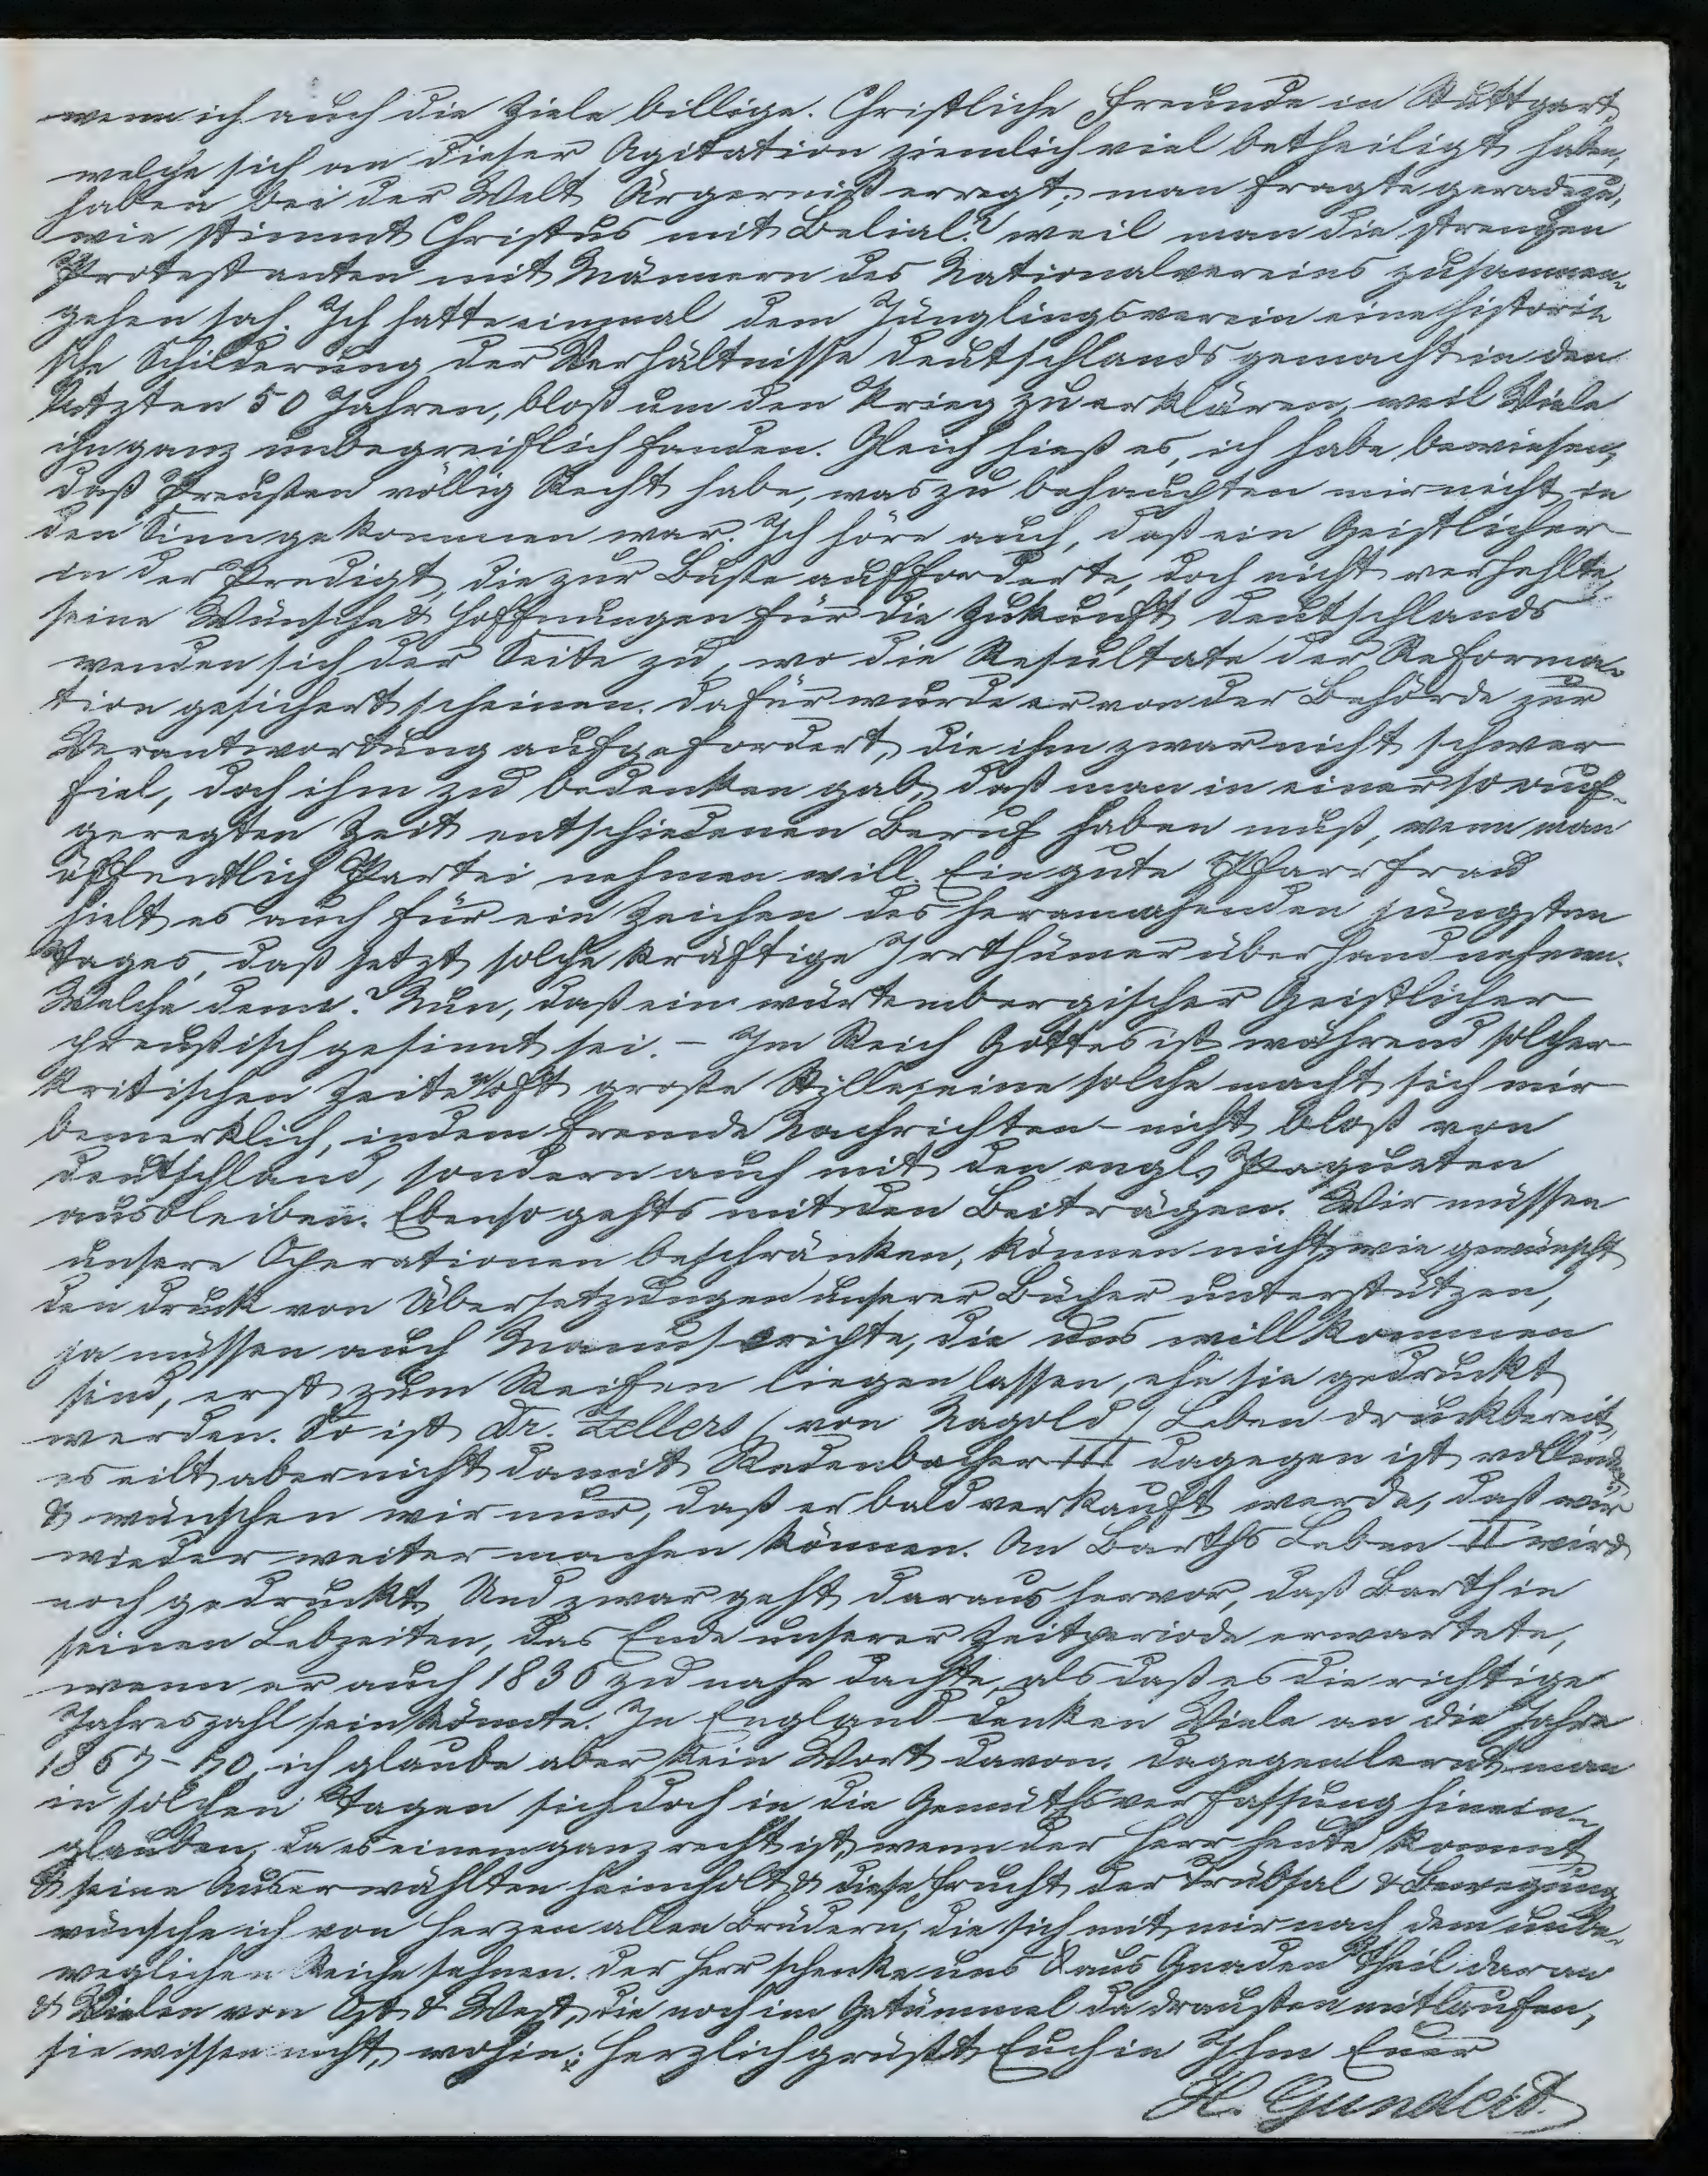 wenn ich auch die Ziele billige. Christliche Freunde in Stuttgart,
welche sich an dieser Agitation ziemlich viel betheiligt haben,
haben bei der Welt Ärgerniß erregt; man fragte geradezu,
wie stimmt Christus mit Belial? weil man die strengen
Protestanten mit Männern des Nationalvereins zusammen-
gehen sah. Ich hatte einmal dem Jünglingsverein eine histori-
sche Schilderung der Verhältnisse Deutschlands gemacht in den
letzten 50 Jahren, bloß um den Krieg zu erklären, weil Viele
ihn ganz unbegreiflich fanden. Gleich hieß es, ich habe bewiesen,
daß Preußen völlig Recht habe, was zu behaupten mir nicht in
den Sinn gekommen war. Ich höre auch, daß ein Geistlicher
in der Predigt, die zur Buße aufforderte, doch nicht verhehlte,
seine Wünsche & Hoffnungen für die Zukunft Deutschlands
wenden sich der Seite zu, wo die Resultate der Reforma-
tion gesichert scheinen. Dafür wurde er von der Behörde zur
Verantwortung aufgefordert, die ihm zwar nicht schwer
fiel, doch ihm zu bedenken gab, daß man in einer so auf-
geregten Zeit entschiedenen Beruf haben muß, wenn man
öffentlich Partei nehmen will. Eine gute Pfarrfrau
hielt es auch für ein Zeichen des herannahenden jüngsten
Tages, daß jetzt solche kräftige Irrthümer überhand nehmen.
Welche denn? Nun, daß ein würtembergischer Geistlicher
preußisch gesinnt sei. – Im Reich Gottes ist während solcher
kritischen Zeiten oft große Stille; eine solche macht sich mir
bemerklich, indem fremde Nachrichten – nicht bloß von
Deutschland, sondern auch mit den engl. Paqueten
ausbleiben. Ebenso gehts mit den Beiträgen. Wir müssen
unsere Operationen beschränken, können nicht, wie gewünscht
den Druck von Übersetzungen unserer Bücher unterstützen,
ja müssen auch Manuscripte, die uns willkommen
sind, erst zum Reifen liegen lassen, ehe sie gedruckt
werden. So ist Dr. Zellers (von Nagold) Leben druckbereit,
es eilt aber nicht damit. Redenbacher III dagegen ist vollendet
& wünschen wir nur, daß er bald verkauft werde, daß wir
wieder weiter machen können. An Barths Leben II wird
noch gedruckt. Und zwar geht daraus hervor, daß Barth in
seinen Lebzeiten, das Ende unserer Zeitperiode erwartete,
wenn er auch 1836 zu nahe dachte, als daß es die richtige
Jahreszahl sein könnte. In England denken Viele an die Jahre
1867–70, ich glaube aber kein Wort davon. Dagegen lernt man
in solchen Tagen sich doch in die Gemüthsverfassung hinein-
glauben, da es einem ganz recht ist, wenn der Herr heute kommt
& seine Auserwählten heimholt & diese Frucht der Trübsal & Bewegung
wünsche ich von Herzen allen Brüdern, die sich mit mir nach dem unbe-
weglichen Reiche sehnen. Der Herr schenke uns aus Gnaden Theil daran
& Vielen von Ost & West, die noch im Getümmel da draußen mitlaufen,
sie wissen nicht, wohin. Herzlich grüßt Euch in Ihm Euer
H. Gundert.